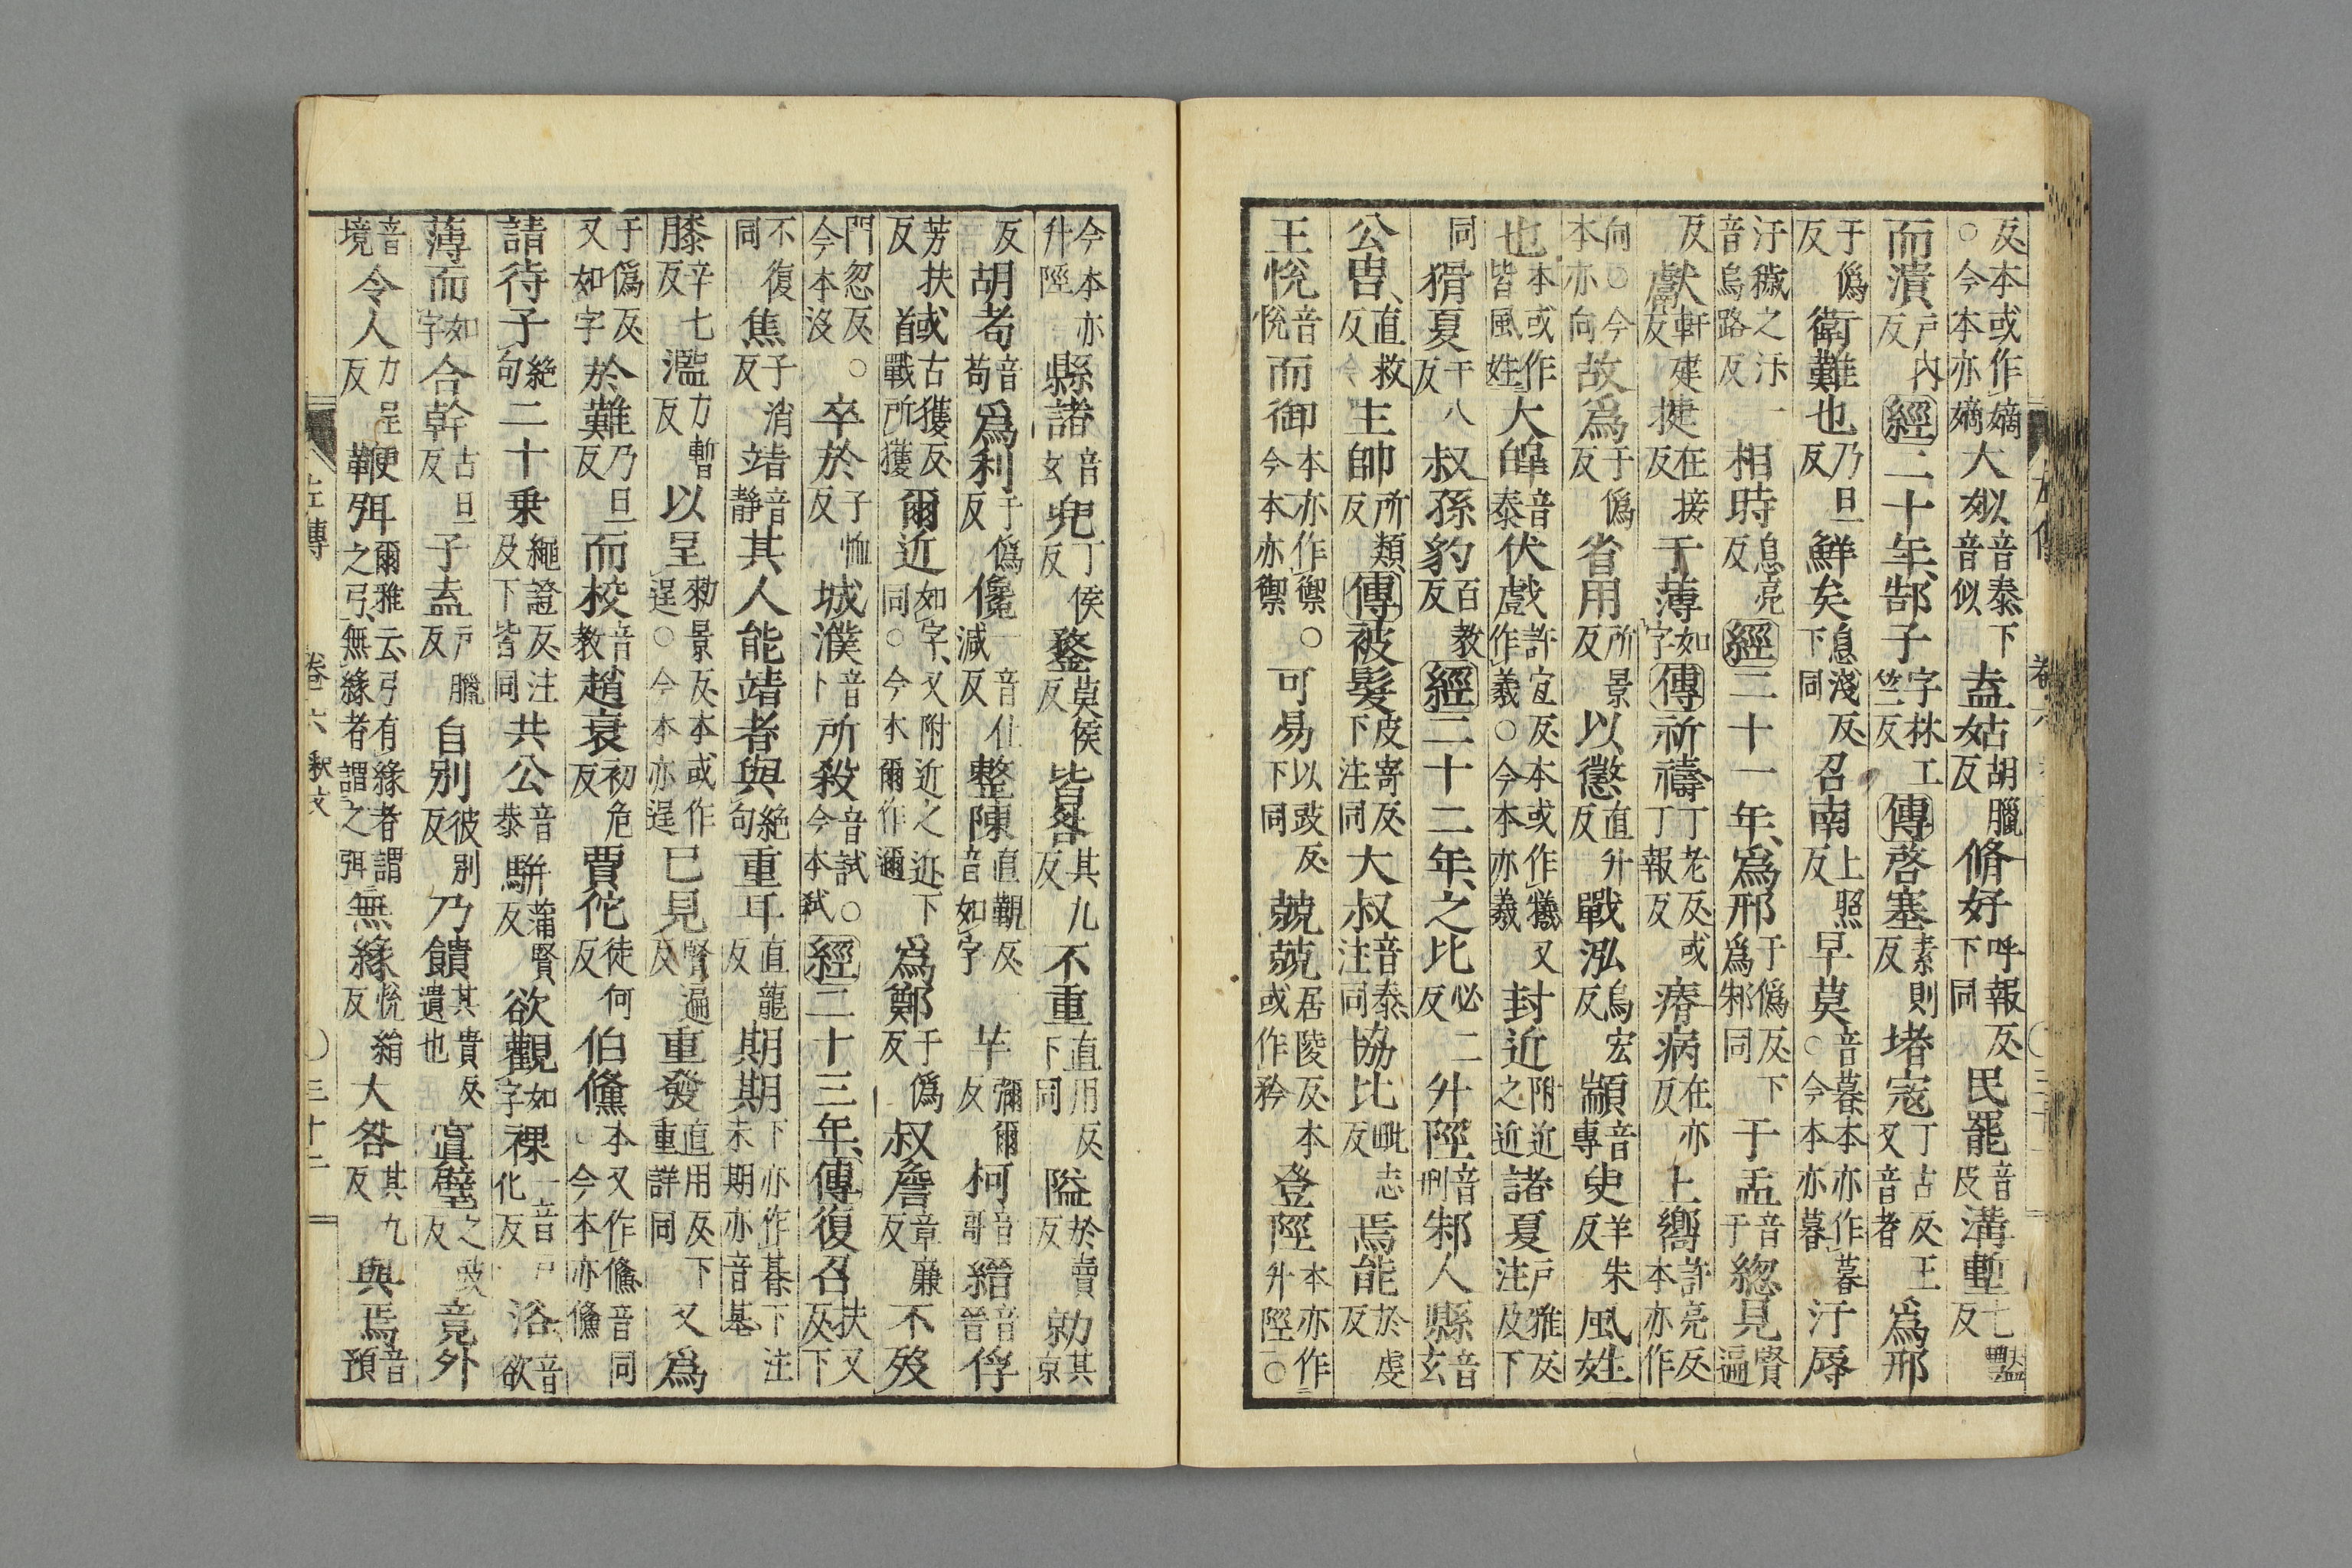 反本或作嫡○今本亦嫡大姒音泰下音似盍姑胡臘反脩好呼報反下同民罷音皮溝塹七豔反
而潰戶內反經二十年、郜子字林工竺反傳啓塞素則反堵寇丁古反王又音者爲邢
于僞反衛難也乃旦反鮮矣息淺反下同召南上照反早莫音暮本亦作暮○今本亦暮汙辱
汙穢之汙一音烏路反相時息亮反經二十一年、爲邢于僞反下爲邾同于盂音于緫見賢遍
反獻軒建反捷在接反于薄如字傳祈禱丁老反或丁報反瘠病在亦反上嚮許亮反本亦作
向○今本亦向故爲于僞反省用所景反以懲直升反戰泓烏宏反顓音專臾羊朱反風姓
也本或作皆風姓大皥音泰伏戲許宜反本或作犧又作羲○今本亦羲封近附近之近諸夏戶雅反注及下
同猾夏干八反叔孫豹百教反經二十二年、之比必二反升陘音刑邾人縣音玄
公冑、直救反主帥所類反傳被髮皮寄反下注同大叔音泰注同協比毗志反焉能於虔反
王悅音悅而御本亦作禦○今本亦禦可易以豉反下同兢兢居陵反本或作矜登陘本亦作升陘○
今本亦升陘縣諸音玄兜丁侯反鍪莫侯反皆咎其九反不重直用反下同隘於賣反勍其京
反胡耇音苟爲利于僞反儳一音仕減反整陳直覲反音如字羋彌爾反柯音哥縉音晉俘
芳扶反或古獲反首戰所獲爾近如字、又附近之近下同○今本爾作邇爲鄭于僞反叔詹章廉反不歿
門忽反○今本沒卒於子恤反城濮音卜所殺音試○今本弒經二十三年、傳復召扶又反下
不復同焦子消反靖音靜其人能靖者與絶句重耳直龍反期期下亦作朞下注末期亦音基
膝辛七反濫力暫反以呈勑景反本或作逞○今本亦逞已見賢遍反重發直用反下重詳同又爲
于僞反又如字於難乃旦反而校音教趙衰初危反賈佗徒何反伯鯈本又作儵音同○今本亦儵
請待子絶句二十乗繩證反注及下皆同共公音恭駢蒲賢反欲觀如字裸一音戶化反浴音欲
薄而如字合幹古旦反子盍戶臘反自別彼別反乃饋其貴反遺也寘璧之豉反竟外
音境令人力呈反鞭弭爾雅云弓有緣者謂之弓、無緣者謂之弭無緣悅絹反大咎其九反與焉音預
左傳 卷六 釈文 ○三十二